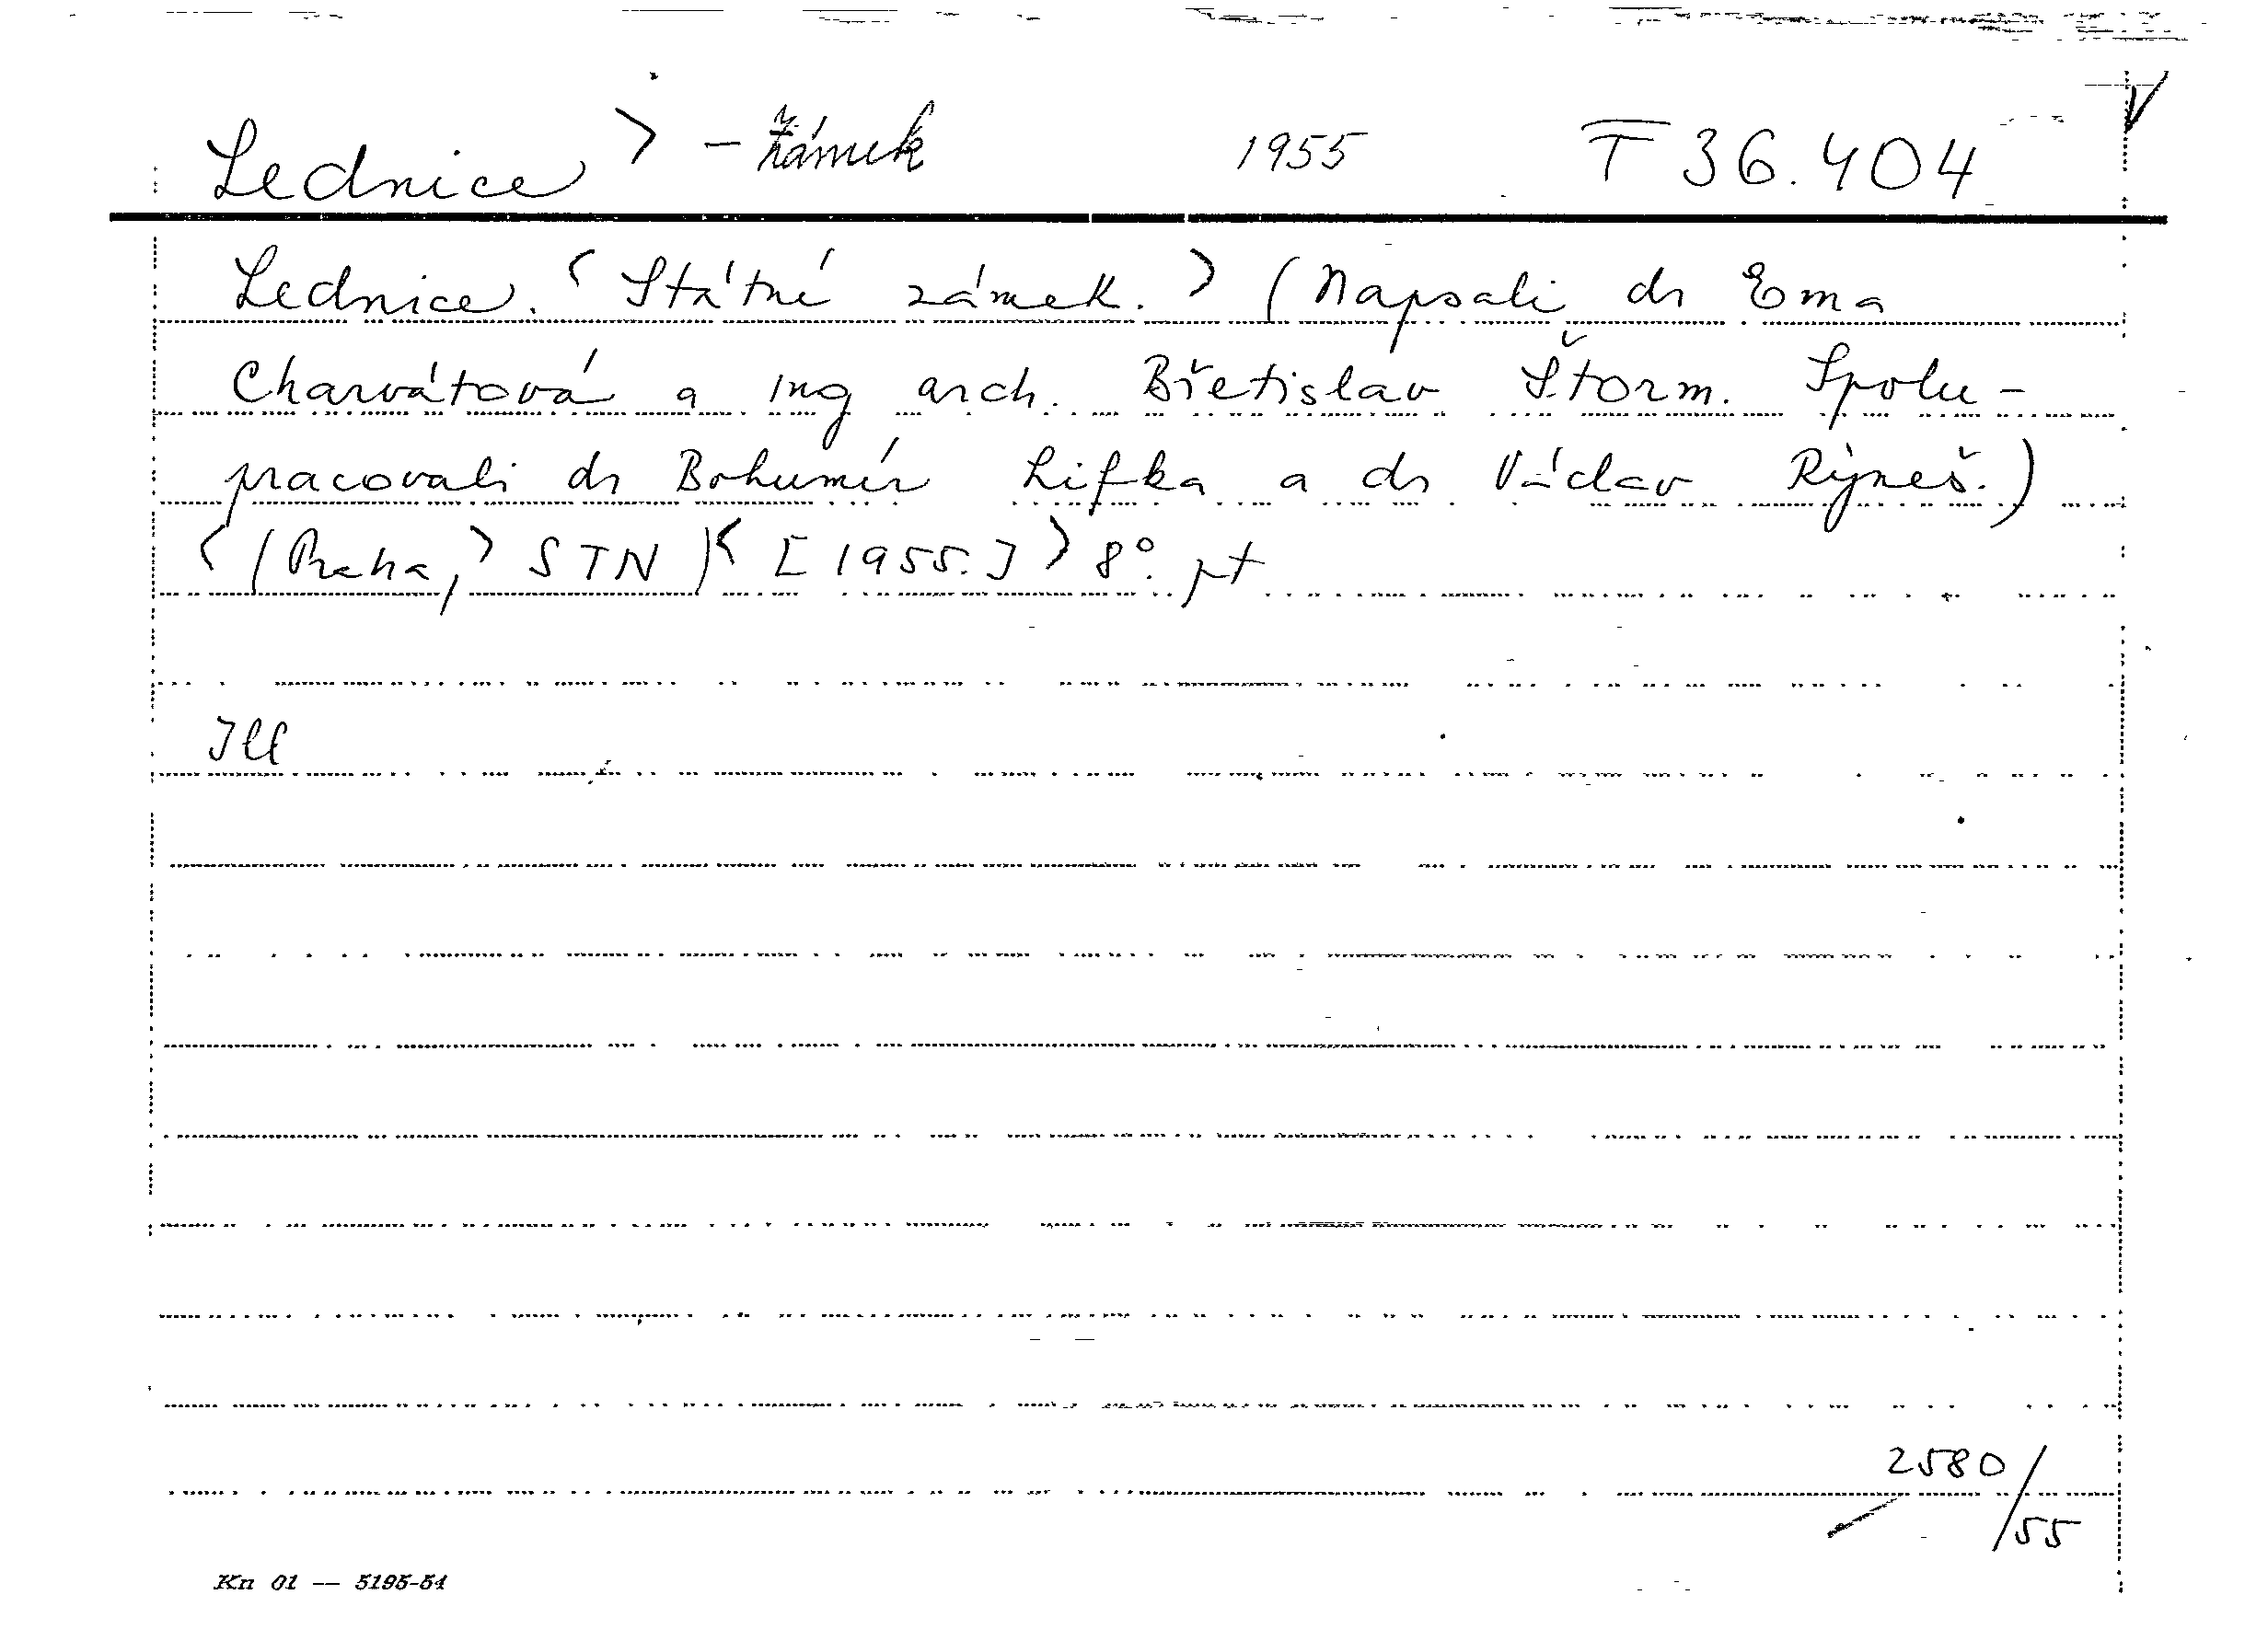 Lednice > - zámek 1955 T 36.404 V
Lednice. < Státní zámek. > (Napsali dr Ema
Charvátová a ing arch. Břetislav Štorm. Spolu-
pracovali dr Bohumír Lifka a dr Václav Ryneš.)
< (Praha, > STN) < [1955.] > 8°. pt
Ill
2580/
55
Kn 01 — 5195-54